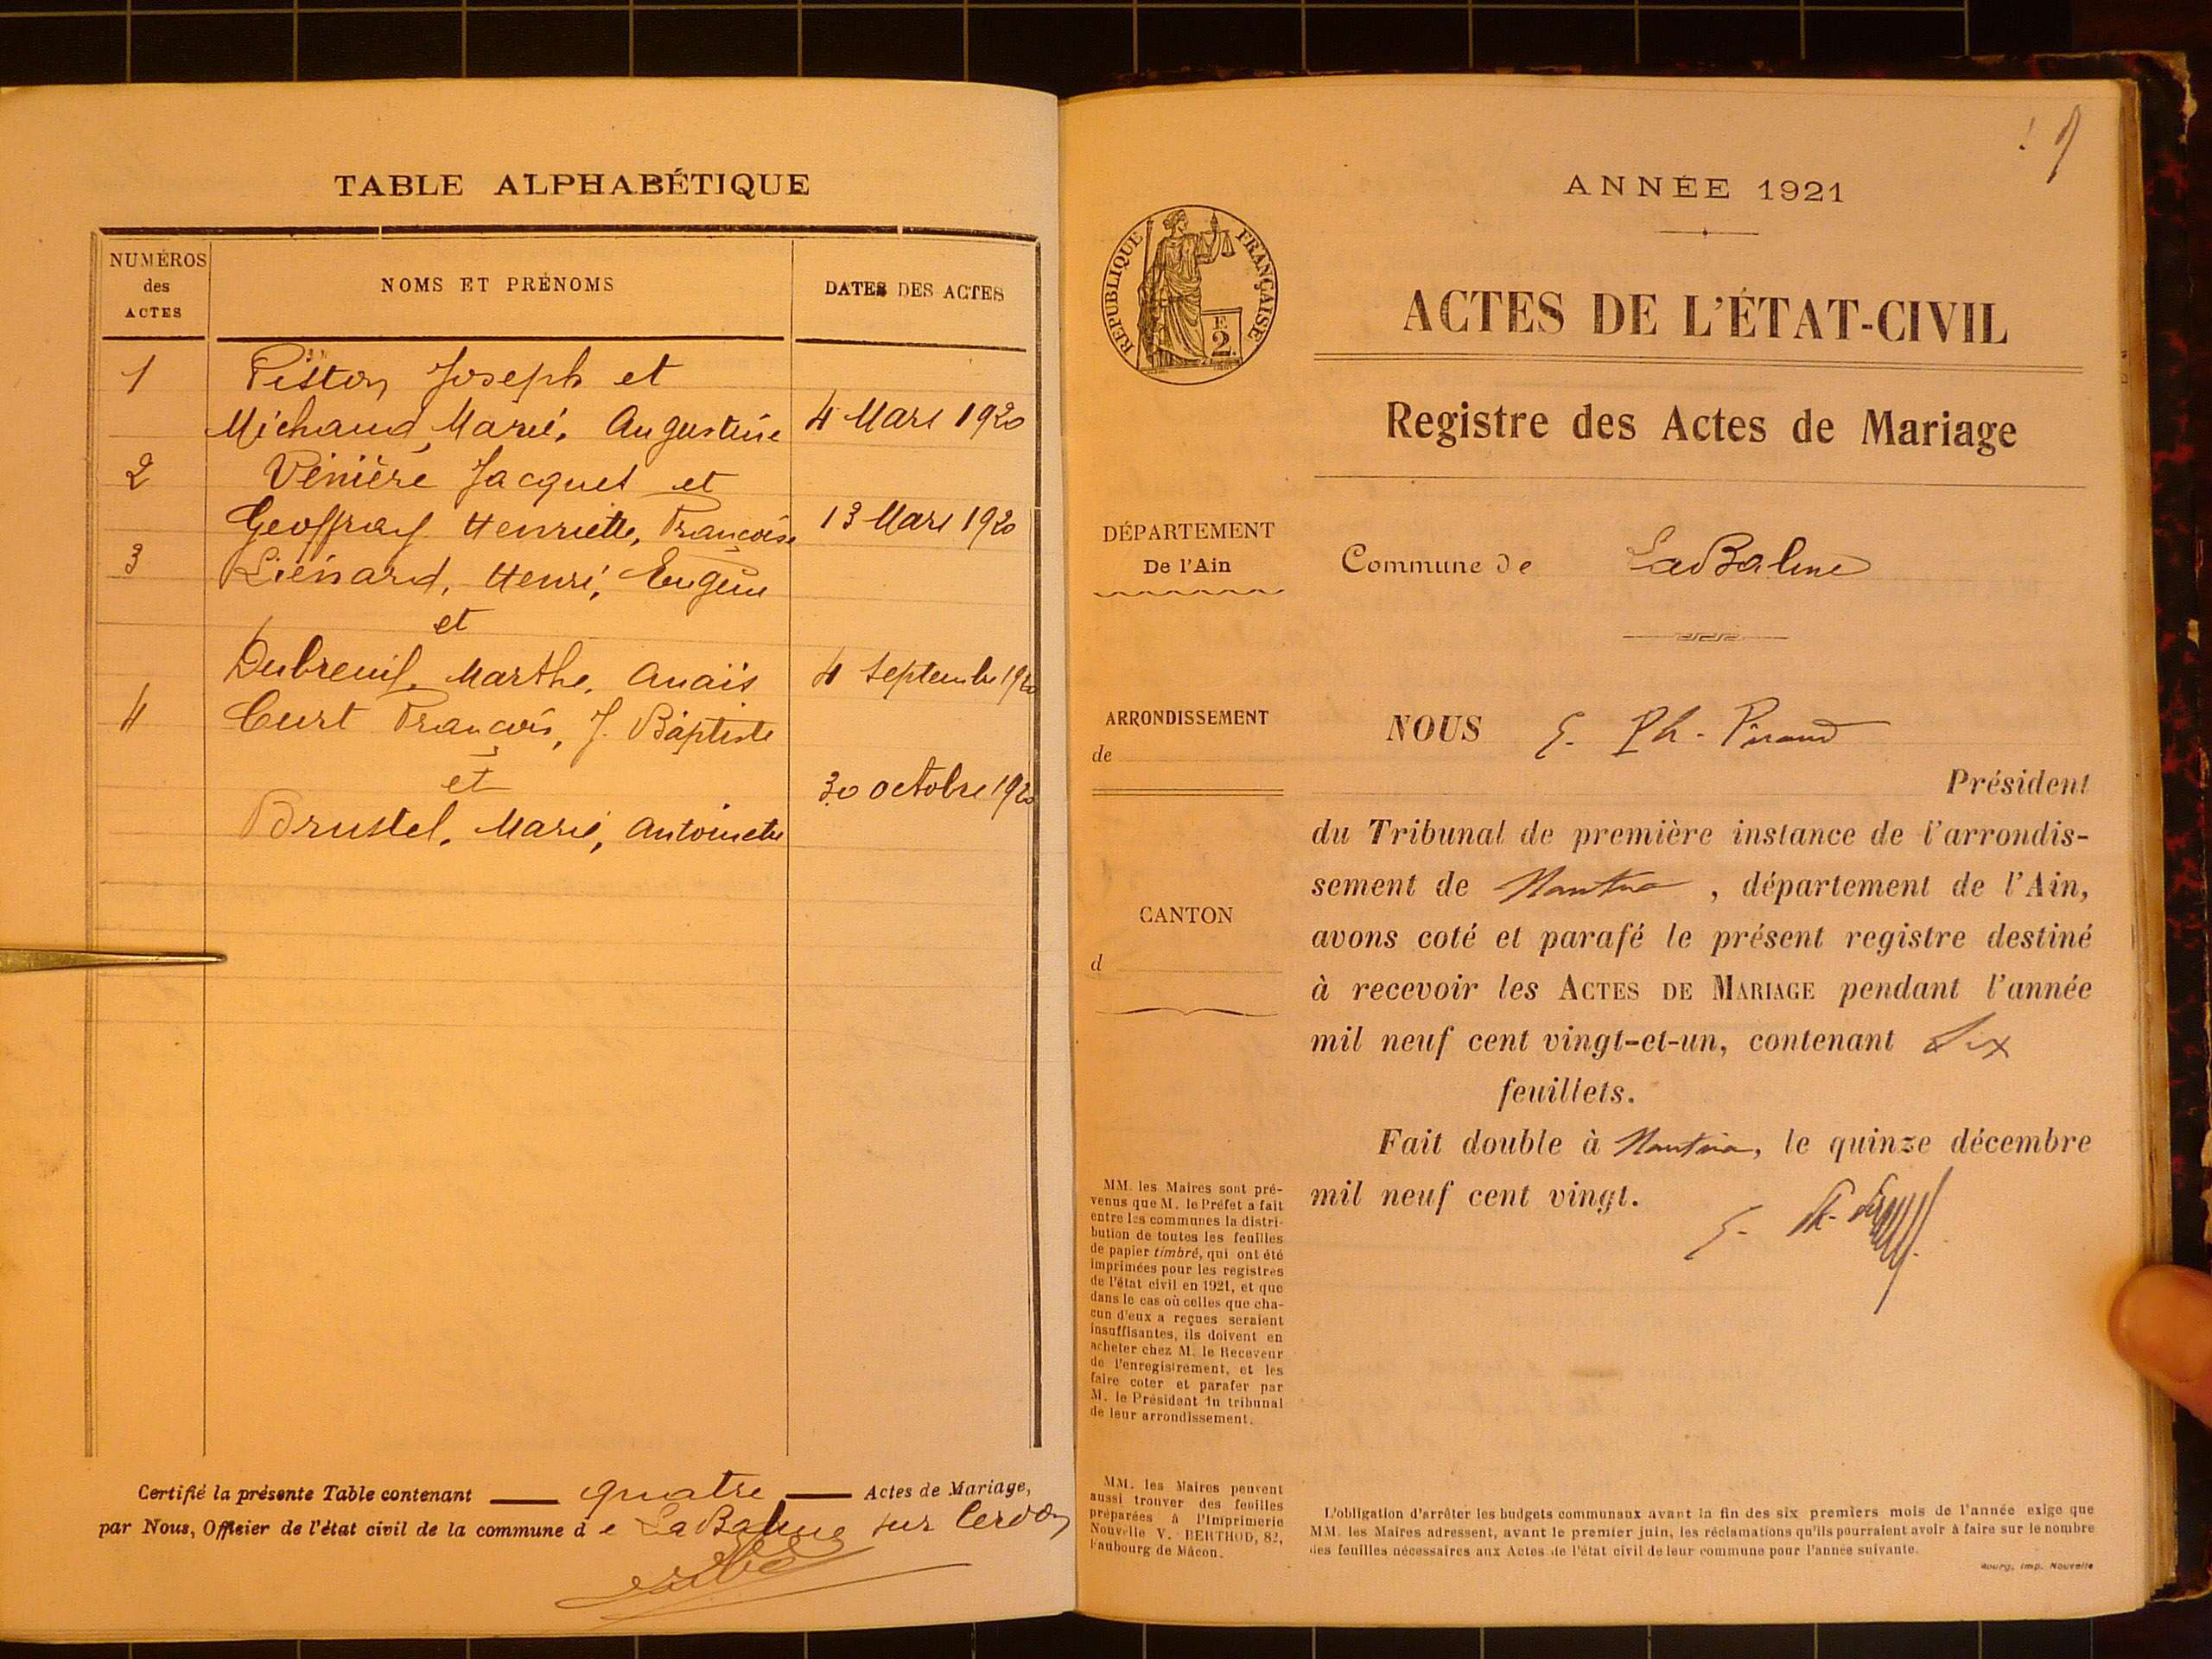 TABLE ALPHABÉTIQUE
NUMÉROS
des
ACTES
NOMS ET PRÉNOMS
DATES DES ACTES
1 Piston Joseph et
Michaud, Marie, Augustine 4 Mars 1920
2 Vénière Jacques et
Geoffray Henriette, Françoise 13 Mars 1920
3 Liénard, Henri, Eugène
et
Dubreuil, Marthe, Anaïs 4 Septembre 1920
4 Curt François, J. Baptiste
et
30 octobre 1920
Brustel, Marie, Antoinette
Certifié la présente Table contenant quatre Actes de Mariage,
par Nous, Officier de l'état civil de la commune de La Balme sur Cerdon
ANNÉE 1921
RÉPUBLIQUE FRANÇAISE
F.
2.
ACTES DE L'ÉTAT-CIVIL
Registre des Actes de Mariage
DÉPARTEMENT
De l'Ain
Commune de La Balme
ARRONDISSEMENT
de
CANTON
d
NOUS E. Ph.
Président
du Tribunal de première instance de l'arrondis-
sement de Nantua, département de l'Ain,
avons coté et parafé le présent registre destiné
à recevoir les ACTES DE MARIAGE pendant l'année
mil neuf cent vingt-et-un, contenant Six
feuillets.
Fait double à Nantua, le quinze décembre
mil neuf cent vingt.
MM. les Maires sont pré-
venus que M. le Préfet a fait
entre les communes la distri-
bution de toutes les feuilles
de papier timbré, qui ont été
imprimées pour les registres
de l'état civil en 1921, et que
dans le cas où celles que cha-
cun d'eux a reçues seraient
insuffisantes, ils doivent en
acheter chez M. le Receveur
de l'enregistrement, et les
faire coter et parafer par
M. le Président du tribunal
de leur arrondissement.
MM. les Maires peuvent
aussi trouver des feuilles
préparées à l'Imprimerie
Nouvelle V. BERTHOD, 82,
Faubourg de Mâcon.
L'obligation d'arrêter les budgets communaux avant la fin des six premiers mois de l'année exige que
MM. les Maires adressent, avant le premier juin, les réclamations qu'ils pourraient avoir à faire sur le nombre
des feuilles nécessaires aux Actes de l'état civil de leur commune pour l'année suivante.
Bourg, Imp. Nouvelle